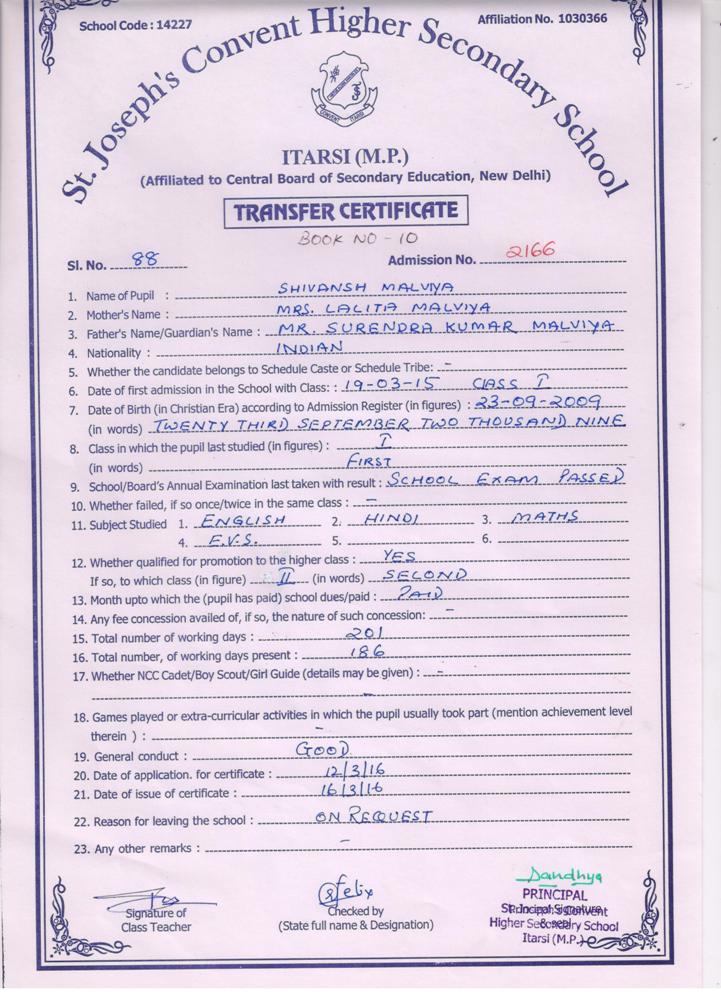 School Code : 14227
Affiliation No. 1030366
St. Joseph's Convent Higher Secondary School
CONVENT ITARSI
ITARSI (M.P.)
(Affiliated to Central Board of Secondary Education, New Delhi)
TRANSFER CERTIFICATE
BOOK NO - 10
Sl. No. 88 Admission No. 2166
1. Name of Pupil : SHIVANSH MALVIYA
2. Mother's Name : MRS. LALITA MALVIYA
3. Father's Name/Guardian's Name : MR. SURENDRA KUMAR MALVIYA
4. Nationality : INDIAN
5. Whether the candidate belongs to Schedule Caste or Schedule Tribe: -
6. Date of first admission in the School with Class: : 19-03-15 CLASS I
7. Date of Birth (in Christian Era) according to Admission Register (in figures) : 23-09-2009
(in words) TWENTY THIRD SEPTEMBER TWO THOUSAND NINE
8. Class in which the pupil last studied (in figures) : I
(in words) FIRST
9. School/Board's Annual Examination last taken with result : SCHOOL EXAM PASSED
10. Whether failed, if so once/twice in the same class : -
11. Subject Studied 1. ENGLISH 2. HINDI 3. MATHS
4. E.V.S. 5. 6.
12. Whether qualified for promotion to the higher class : YES
If so, to which class (in figure) II (in words) SECOND
13. Month upto which the (pupil has paid) school dues/paid : PAID
14. Any fee concession availed of, if so, the nature of such concession: -
15. Total number of working days : 201
16. Total number, of working days present : 186
17. Whether NCC Cadet/Boy Scout/Girl Guide (details may be given) : -
-
18. Games played or extra-curricular activities in which the pupil usually took part (mention achievement level
therein ) : -
19. General conduct : GOOD
20. Date of application. for certificate : 12/3/16
21. Date of issue of certificate : 16/3/16
22. Reason for leaving the school : ON REQUEST
23. Any other remarks : -
Felix
Sandhya
Signature of
Class Teacher
Checked by
(State full name & Designation)
PRINCIPAL
St. Joseph's Convent
Principal Signature
Higher Secondary School
& seal
Itarsi (M.P.)